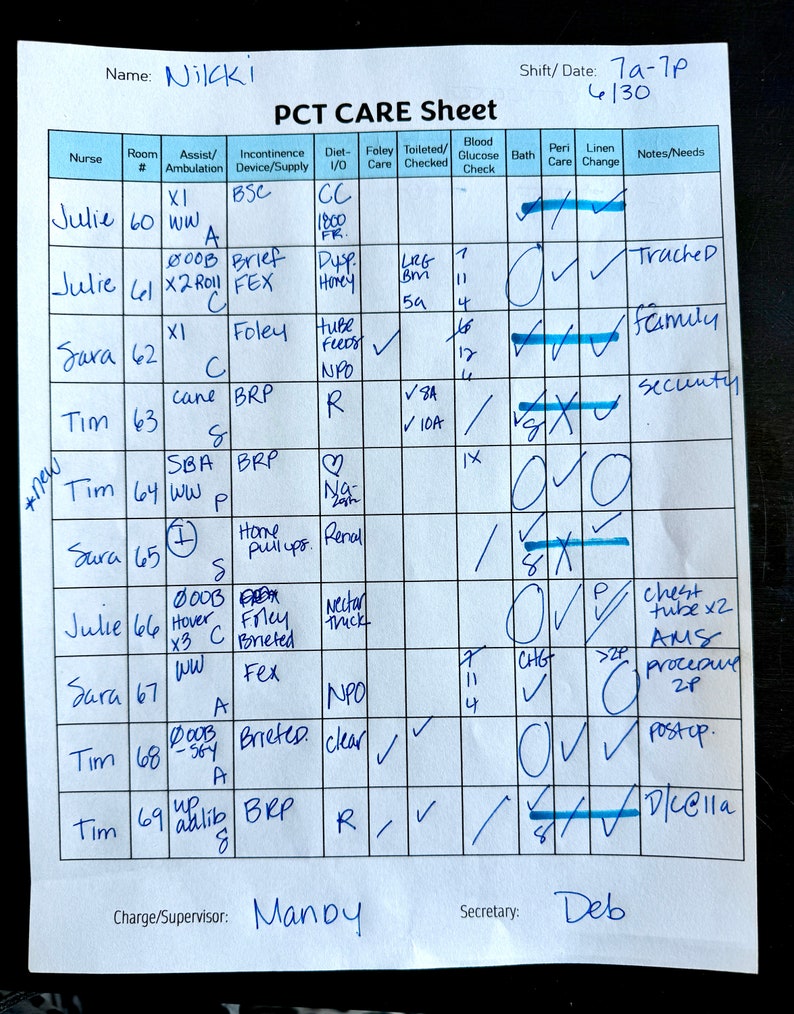 Name: Nikki
Shift/ Date: 7a-7p
6/30
PCT CARE Sheet
Nurse Room # Assist/ Ambulation Incontinence Device/Supply Diet- I/O Foley Care Toileted/ Checked Blood Glucose Check Bath Peri Care Linen Change Notes/Needs
Julie 60 X1 WW A BSC CC 1800 FR. ✓ / ✓
Julie 61 ØOOB X2 Roll C Brief FEX Dysp. Honey LRG Bm 5a 7 11 4 O ✓ ✓ Trached
Sara 62 X1 C Foley tube feeds NPO ✓ 6 12 6 ✓ / ✓ family
Tim 63 cane S BRP R ✓ 8A ✓ 10A / ✓ S X ✓ security
*new Tim 64 SBA WW P BRP ♡ Na- 1X O ✓ O
Sara 65 I S Home pullups. Renal / ✓ S X ✓
Julie 66 ØOOB Hover x3 C Foley Briefed Nectar thick O ✓ P ✓ chest tube x2 AMS
Sara 67 WW A Fex NPO 7 11 4 CHG ✓ >2P O procedure 2P
Tim 68 ØOOB - Sgy A Briefed. clear ✓ ✓ O ✓ ✓ postop.
Tim 69 up adlib S BRP R / ✓ / ✓ S / ✓ D/C@11a
Charge/Supervisor: Mandy
Secretary: Deb